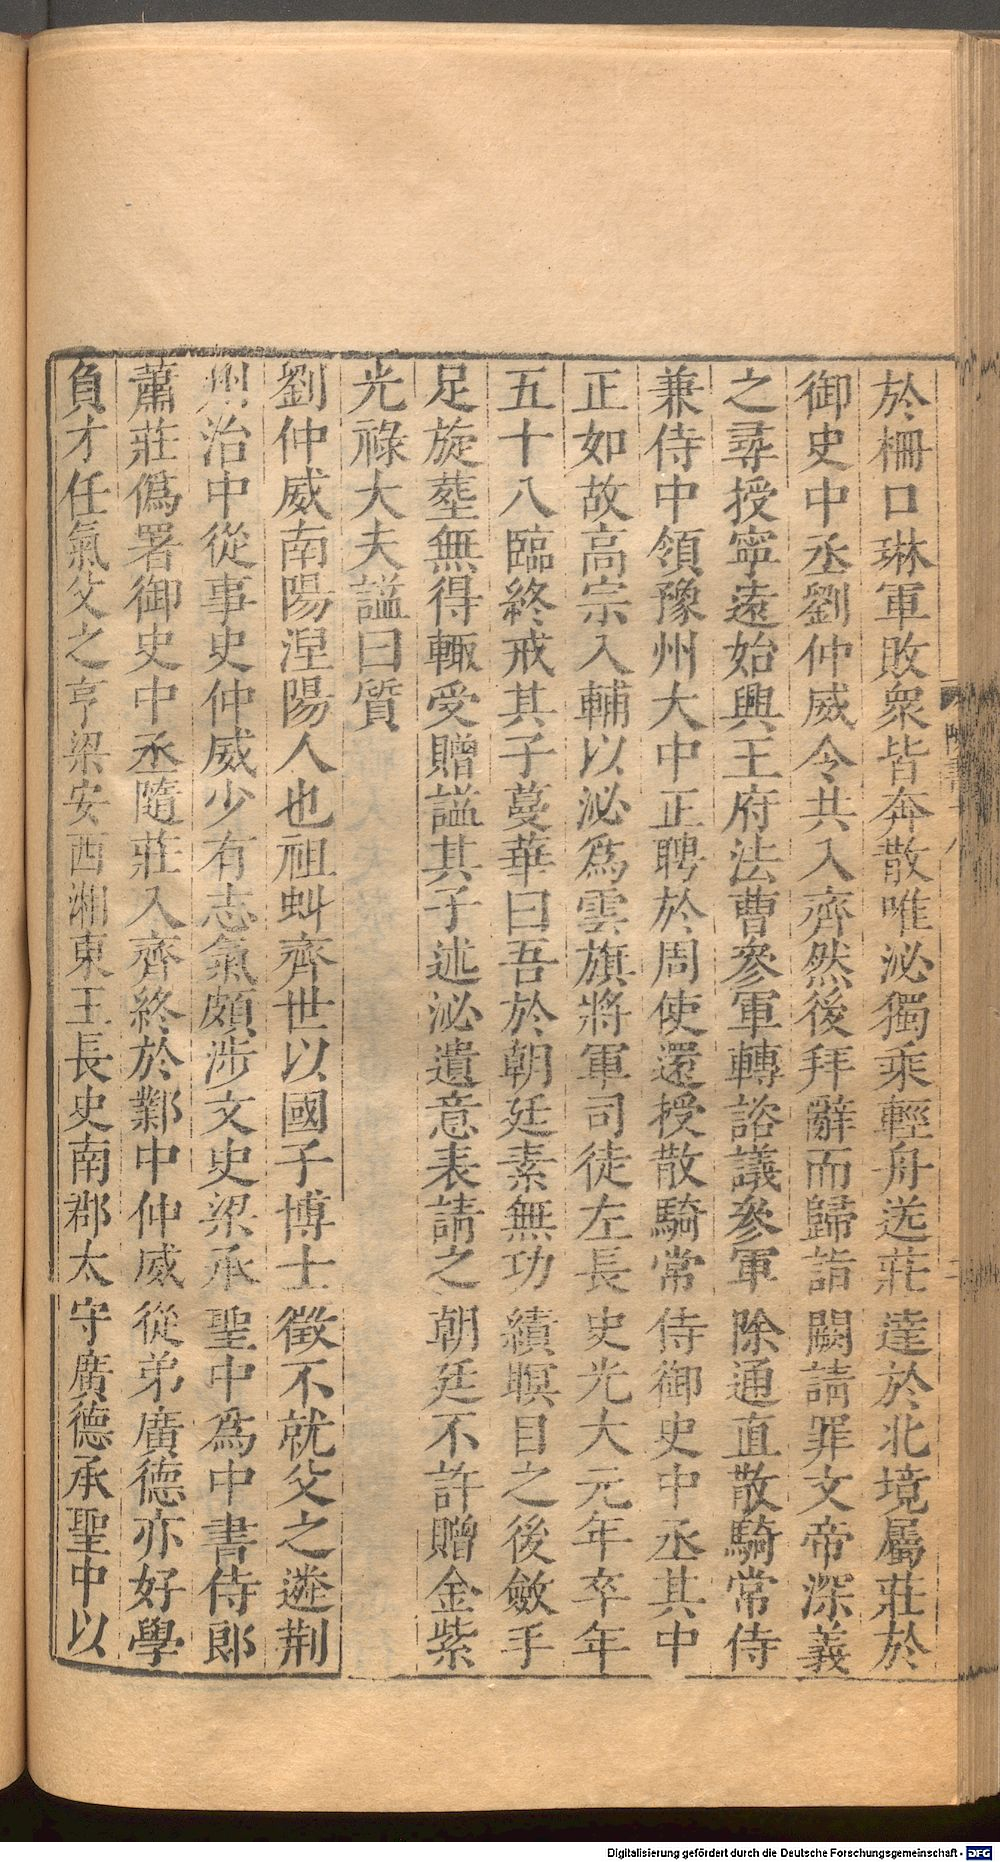 於柵口琳軍敗衆皆奔散唯泌獨乘輕舟送莊達於北境屬莊於
御史中丞劉仲威令共入齊然後拜辭而歸詣闕請罪文帝深義
之尋授寧遠始興王府法曹參軍轉諮議參軍除通直散騎常侍
兼侍中領豫州大中正聘於周使還授散騎常侍御史中丞其中
正如故高宗入輔以泌爲雲旗將軍司徒左長史光大元年卒年
五十八臨終戒其子蔓華曰吾於朝廷素無功績瞑目之後斂手
足旋塟無得輒受贈謚其子述泌遺意表請之朝廷不許贈金紫
光祿大夫謚曰質
劉仲威南陽涅陽人也祖虯齊世以國子博士徵不就父之遴荆
州治中從事史仲威少有志氣頗涉文史梁承聖中爲中書侍郎
蕭莊僞署御史中丞隨莊入齊終於鄴中仲威從弟廣德亦好學
負才任氣父之亨梁安西湘東王長史南郡太守廣德承聖中以
Digitalisierung gefördert durch die Deutsche Forschungsgemeinschaft - DFG